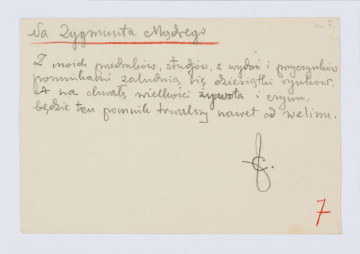 Na Zygmunta Mądrego
Z moich przedruków, studjów, z wydań i przyczynków
pomnikami zaludnią się dziesiątki rynków,
A na chwałę wielkości żywota i czynu,
będzie ten pomnik trwalszy nawet od welinu.
7